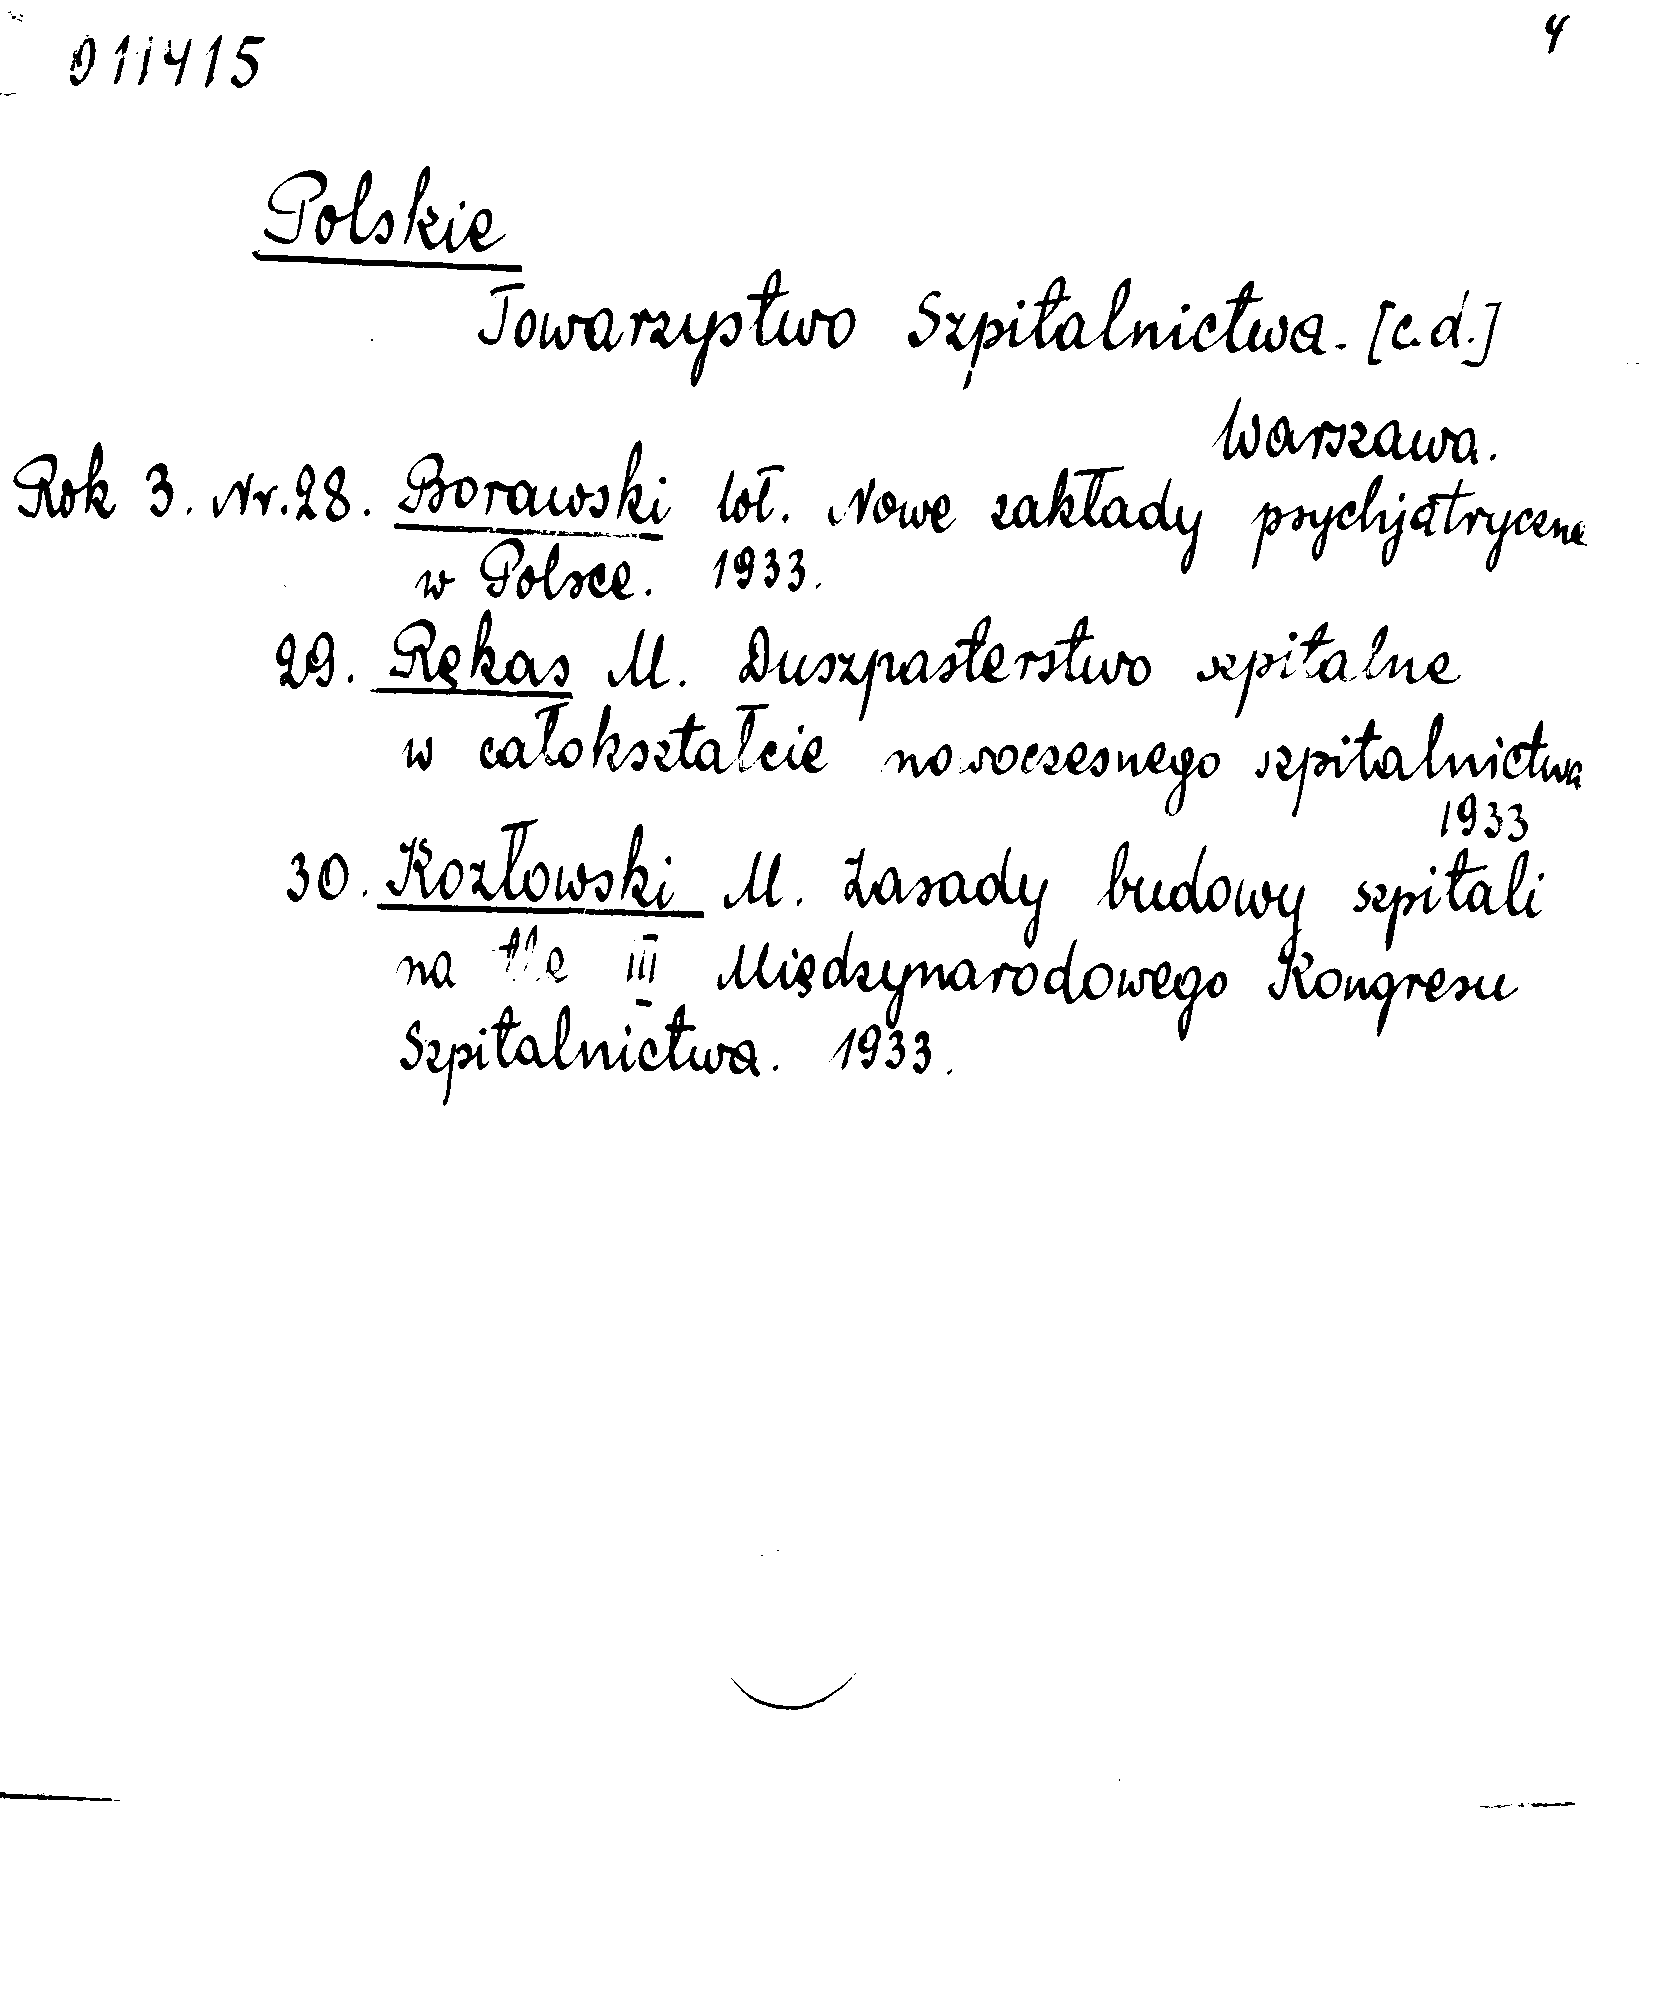 011415
4
Polskie
Towarzystwo Szpitalnictwa. [c.d.]
Warszawa.
Rok 3. Nr. 28. Borawski Wł. Nowe zakłady psychjatryczne
w Polsce. 1933.
29. Rękas M. Duszpasterstwo szpitalne
w całokształcie nowoczesnego szpitalnictwa
1933
30. Kozłowski M. Zasady budowy szpitali
na tle III Międzynarodowego Kongresu
Szpitalnictwa. 1933.